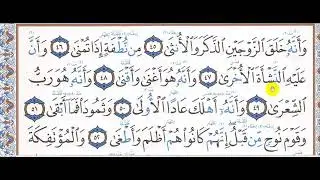 وَأَنَّهُۥ خَلَقَ ٱلزَّوْجَيْنِ ٱلذَّكَرَ وَٱلْأُنثَىٰ ٤٥ مِن نُّطْفَةٍ إِذَا تُمْنَىٰ ٤٦ وَأَنَّ
عَلَيْهِ ٱلنَّشْأَةَ ٱلْأُخْرَىٰ ٤٧ وَأَنَّهُۥ هُوَ أَغْنَىٰ وَأَقْنَىٰ ٤٨ وَأَنَّهُۥ هُوَ رَبُّ
ٱلشِّعْرَىٰ ٤٩ وَأَنَّهُۥٓ أَهْلَكَ عَادًا ٱلْأُولَىٰ ٥٠ وَثَمُودَا۟ فَمَآ أَبْقَىٰ ٥١
وَقَوْمَ نُوحٍ مِّن قَبْلُ إِنَّهُمْ كَانُوا۟ هُمْ أَظْلَمَ وَأَطْغَىٰ ٥٢ وَٱلْمُؤْتَفِكَةَ